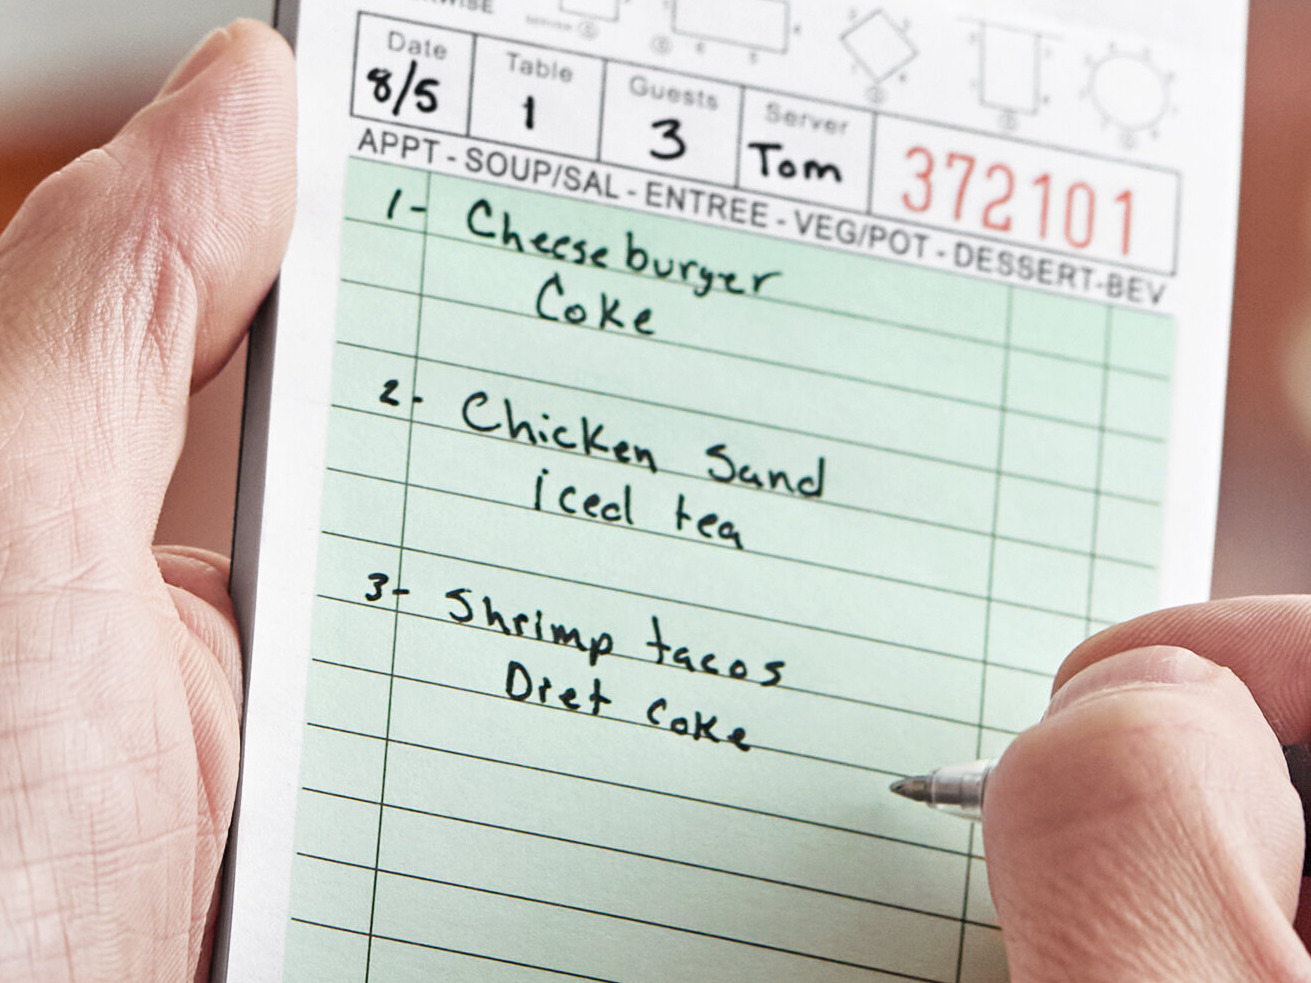 WISE
SERVICE
Date Table Guests Server
8/5 1 3 Tom 372101
APPT - SOUP/SAL - ENTREE - VEG/POT - DESSERT-BEV
1- Cheeseburger
Coke
2- Chicken Sand
iced tea
3- Shrimp tacos
Diet Coke